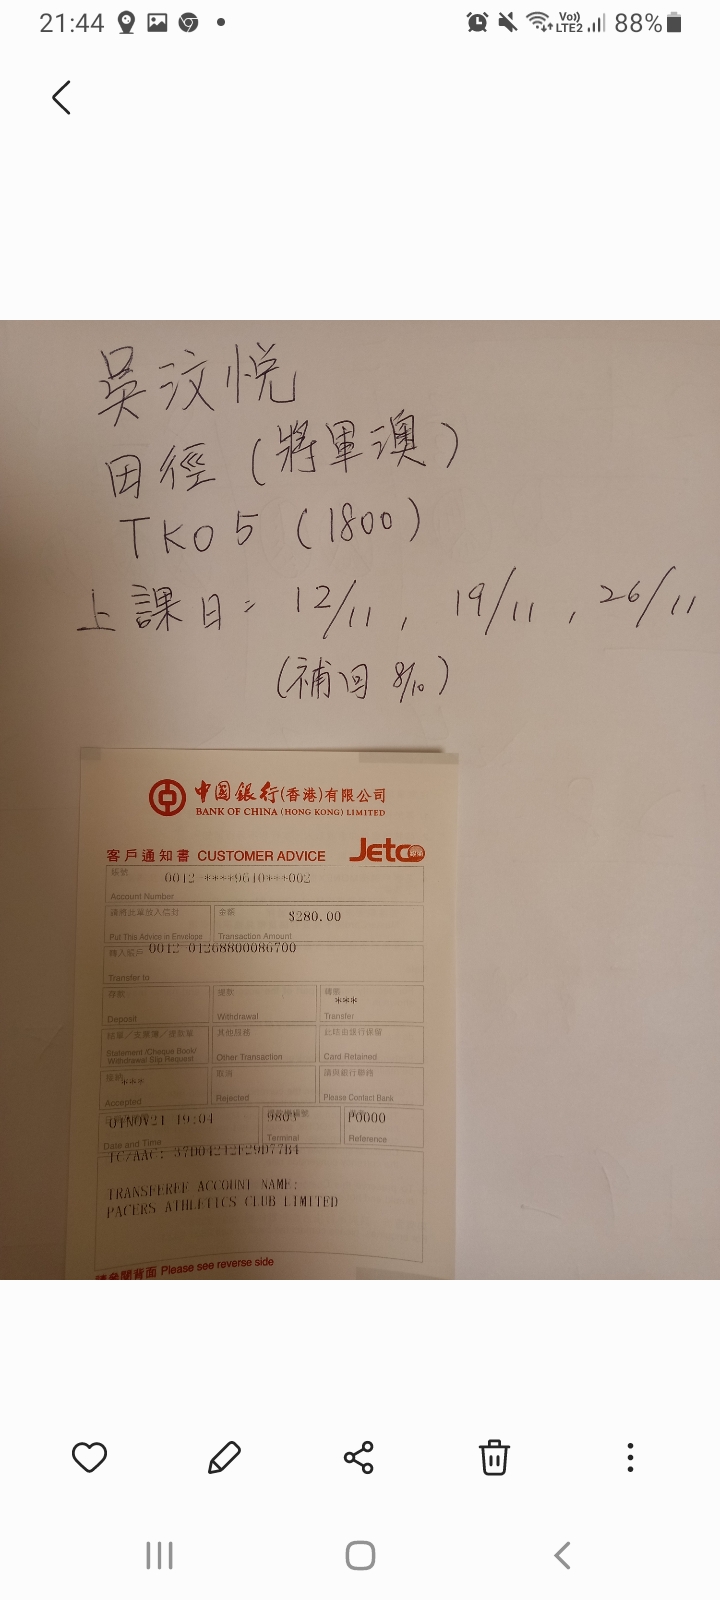 21:44
Vo)) LTE2 88%
吳汶悦
田徑 (將軍澳)
TKO 5 (1800)
上課日= 12/11, 19/11, 26/11
(補回 8/10)
中国銀行(香港)有限公司
BANK OF CHINA (HONG KONG) LIMITED
客戶通知書 CUSTOMER ADVICE Jetco
賬號 0012 ****9610***002
Account Number
請將此單放入信封 金額 $280.00
Put This Advice in Envelope Transaction Amount
轉入賬戶 0012 01268800086700
Transfer to
存款 提款 轉賬
***
Deposit Withdrawal Transfer
結單/支票簿/提款單 其他服務 此咭由銀行保留
Statement/Cheque Book/
Withdrawal Slip Request Other Transaction Card Retained
接納 *** 取消 請與銀行聯絡
Accepted Rejected Please Contact Bank
01NOV21 19:04 9803 P0000
Date and Time Terminal Reference
TC/AAC: 37D04212F29D77B4
TRANSFEREE ACCOUNT NAME:
PACERS ATHLETICS CLUB LIMITED
請參閱背面 Please see reverse side